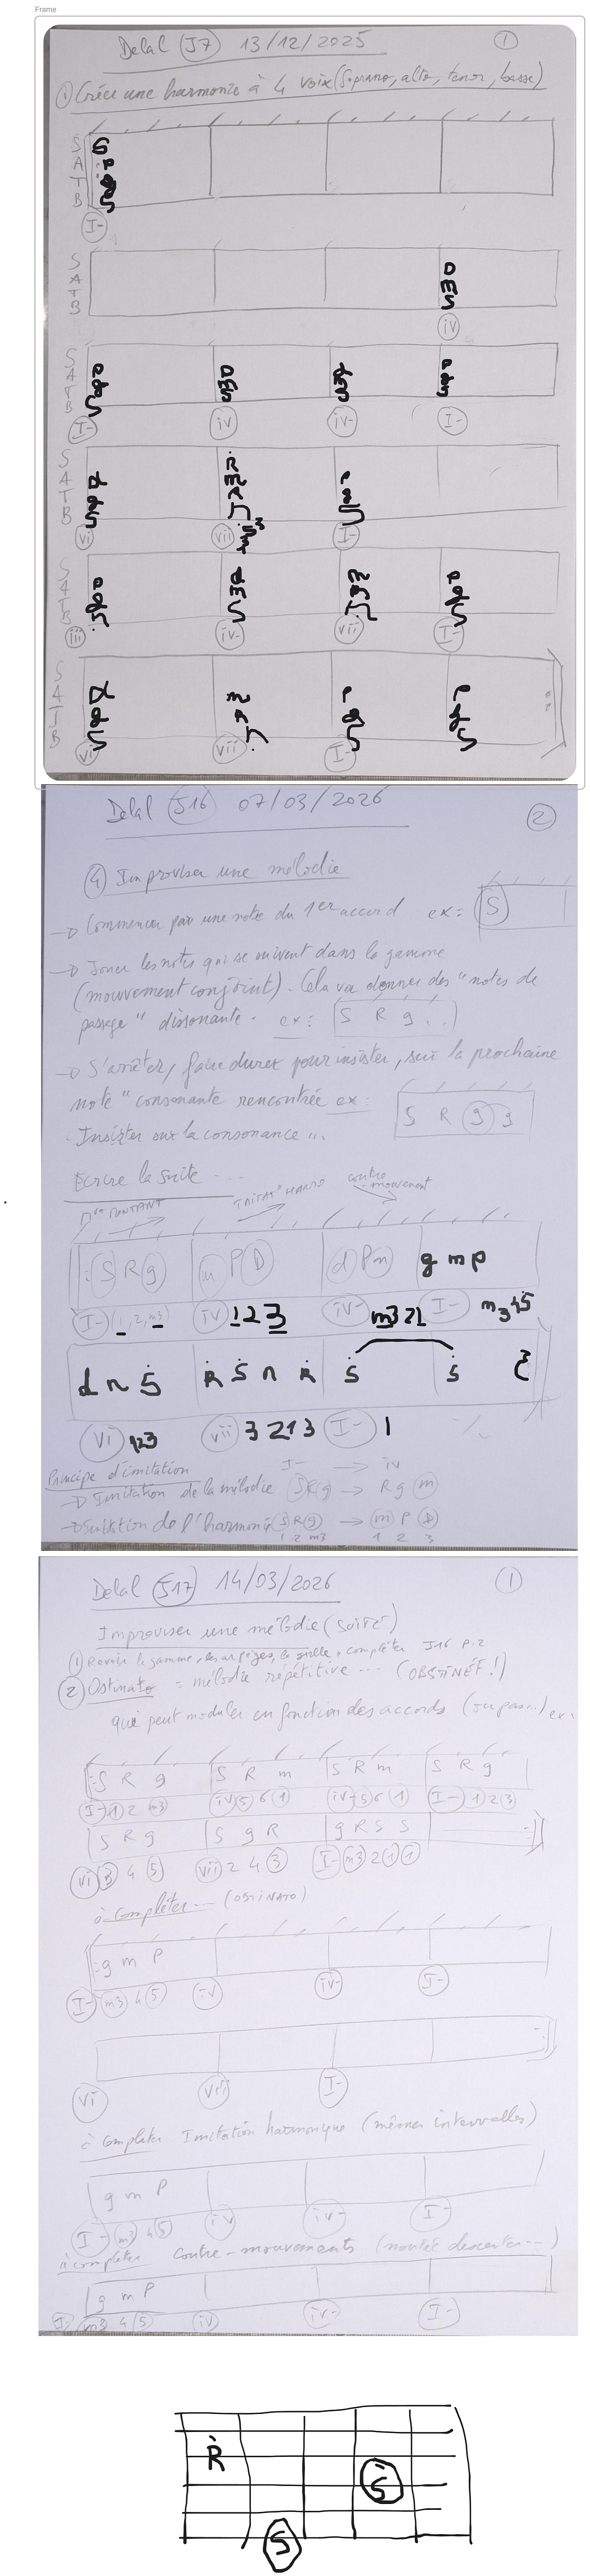 Frame
Delal (J7) 13/12/2025 ①
① Créer une harmonie à 4 voix (Soprano, alto, tenor, basse)
S
A
T
B
I-
S
A
T
B
iv
S
A
T
B
I- iv iv- I-
S
A
T
B
vi vii I-
S
A
T
B
iii iv- vii I-
S
A
T
B
vi vii I-
Delal (J16) 07/03/2026 ②
④ Improviser une mélodie
→ Commencer par une note du 1er accord ex: S
→ Jouer les notes qui se suivent dans la gamme
(mouvement conjoint). Cela va donner des "notes de
passage" dissonante. ex: S R g . .
→ S'arrêter, faire durer pour insister, sur la prochaine
note "consonante rencontrée ex: S R g g
Insister sur la consonance"...
Ecrire la suite ...
contre
mouvement
S R g m P D d P m g m p
I- (1, 2, m3) iv 1 2 3 iv- m3 2 1 I- m3 4 5
d n Ṡ Ṙ Ṡ n Ṙ Ṡ Ṡ
vi 123 vii 3 2 1 3 I- 1
Principe d'imitation I- → iv
→ Imitation de la mélodie S R g → R g m
→ Imitation de l'harmonie S R g → m P D
1 2 m3 1 2 3
Delal (J17) 14/03/2026 ①
Improviser une mélodie (SUITE)
① Revoir la gamme, les arpèges, la grille, compléter J16 p.2
② Ostinato = mélodie répétitive ... (OBSTINÉE!)
qui peut moduler en fonction des accords (ou pas..) ex:
S R g S R m S R m S R g
I- 1 2 m3 iv 5 6 1 iv- 5 6 1 I- 1 2 3
S R g S g R g R S S
vi 3 4 5 vii 2 4 3 I- m3 2 1 1
à compléter ... (OSTINATO)
g m P
I- m3 4 5 iv iv- I-
vi vii I-
à compléter Imitation harmonique (mêmes intervalles)
g m P
I- m3 4 5 iv iv- I-
à compléter contre-mouvements (montée descentes...)
g m P
I- m3 4 5 iv iv- I-
Ṙ
Ṡ
S